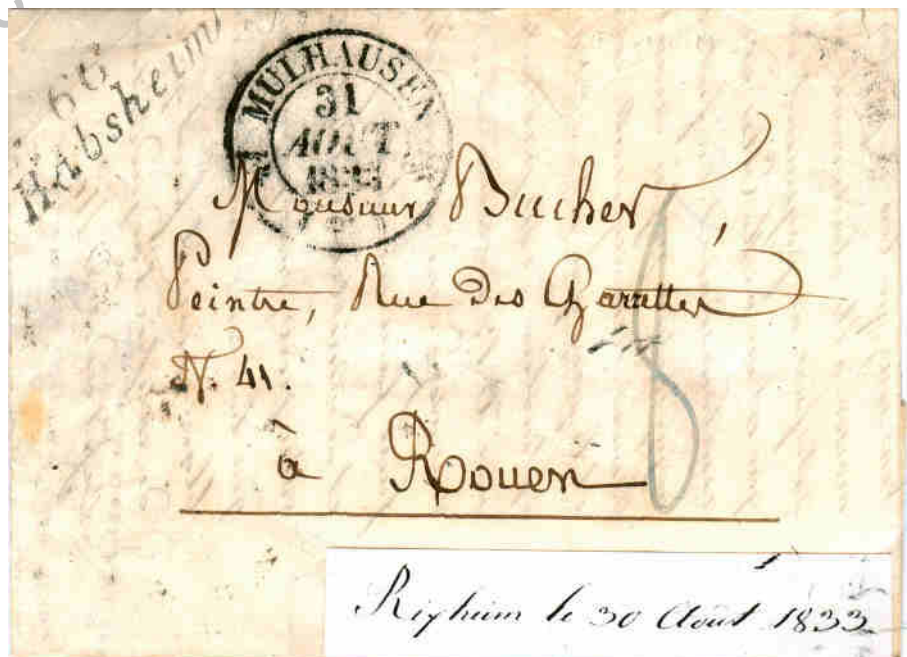 66
Habsheim
MULHAUSEN
31
AOUT
1833
Monsieur Bucher,
Peintre, Rue Des Charettes
N. 41.
à Rouen
8
Rixheim le 30 Août 1833